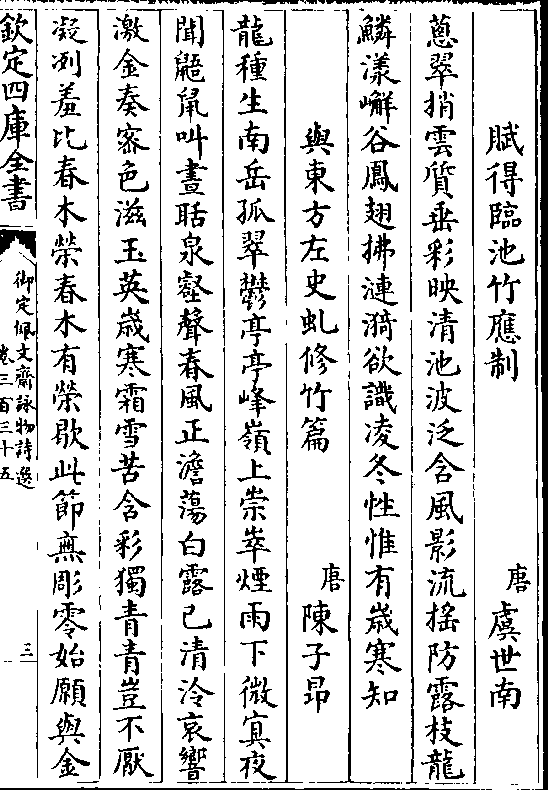 賦得臨池竹應制
唐虞世南
蔥翠捎雲質垂彩映清池波泛含風影流搖防露枝龍
鱗漾嶰谷鳳翅拂漣漪欲識凌冬性惟有歲寒知
與東方左史虬修竹篇
唐陳子昂
龍種生南岳孤翠鬱亭亭峰嶺上崇崒煙雨下微冥夜
聞鼯鼠叫晝聒泉壑聲春風正澹蕩白露已清泠哀響
激金奏宻色滋玉英歲寒霜雪苦含彩獨青青豈不厭
凝冽羞比春木榮春木有榮歇此節無彫零始願與金
欽定四庫全書
御定佩文齋詠物詩選
卷三百三十五
三